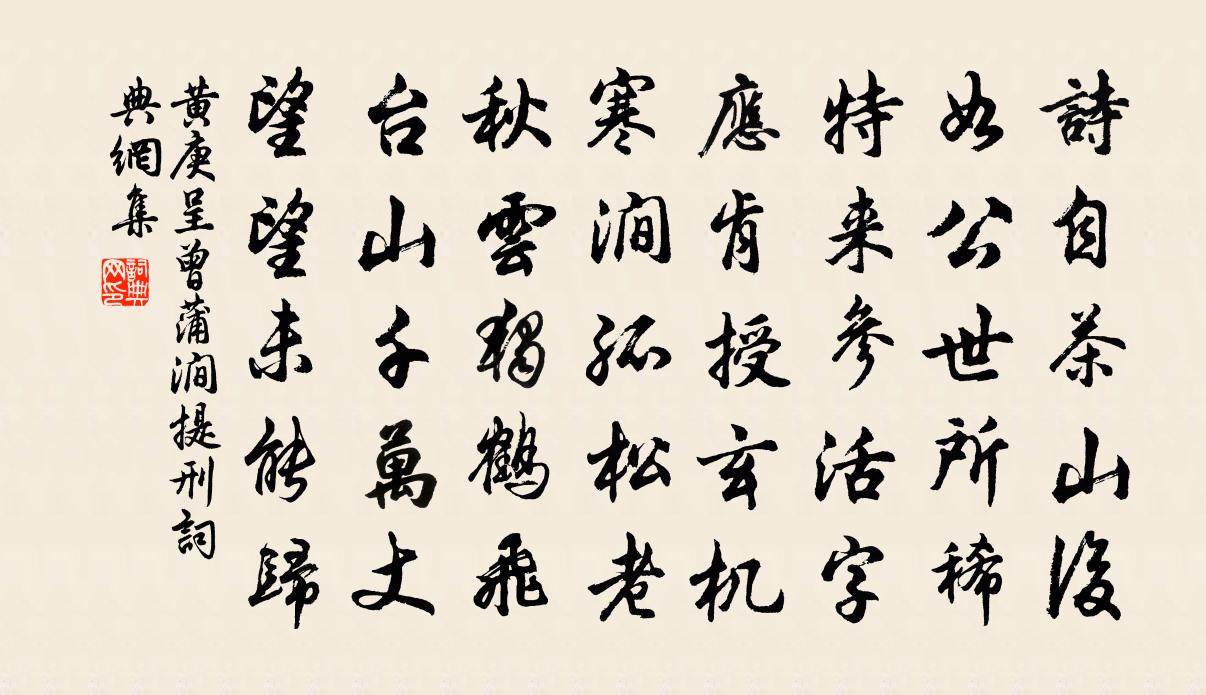 詩自茶山後
如公世所稀
特来參活字
應肯授玄机
寒澗孤松老
秋雲獨鶴飛
台山千萬丈
望望未能歸
黃庚呈曾蒲澗提刑詞
典網集
詞典
网印